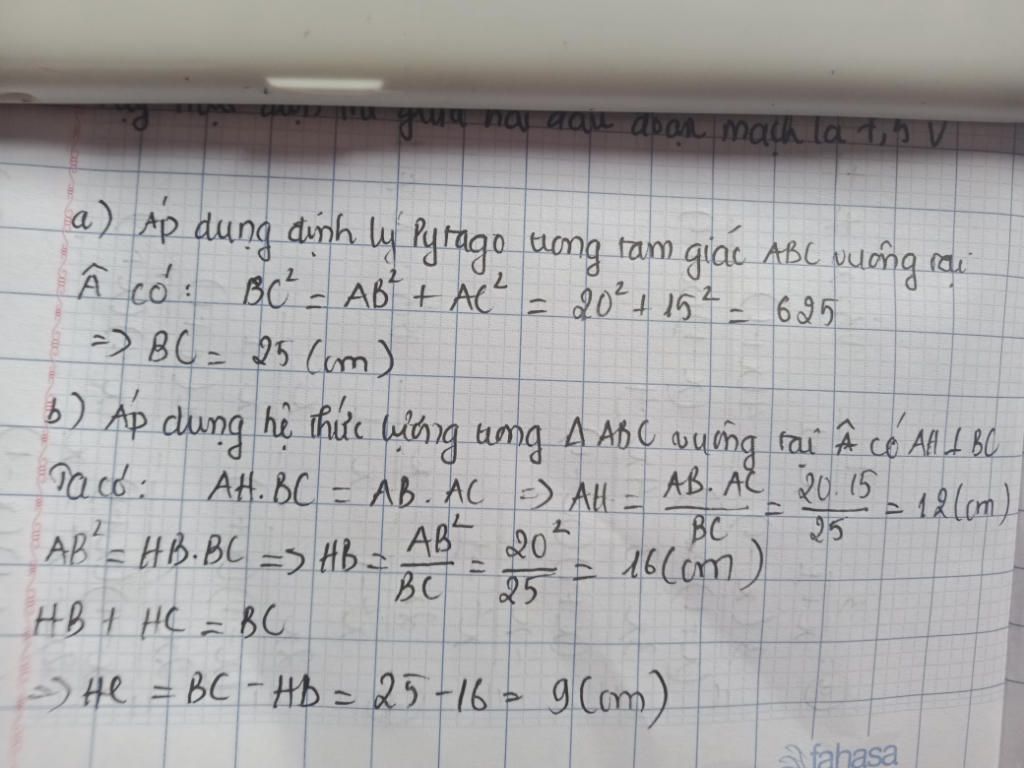 giữa hai đầu đoạn mạch là 1,5 V
a) Áp dụng định lý Pytago trong tam giác ABC vuông tại
Â có: BC² = AB² + AC² = 20² + 15² = 625
=> BC = 25 (cm)
b) Áp dụng hệ thức lượng trong Δ ABC vuông tại Â có AH ⊥ BC
Ta có: AH.BC = AB.AC => AH = AB.AC/BC = 20.15/25 = 12 (cm)
AB² = HB.BC => HB = AB²/BC = 20²/25 = 16 (cm)
HB + HC = BC
=> HC = BC - HB = 25 - 16 = 9 (cm)
fahasa